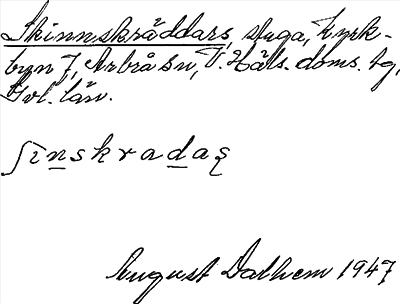 Skinnskräddars, stuga, Kyrk-
byn 7, Arbrå sn, V. Häls. doms. hg,
Gvl. län.
ʃinskradaș
August Dalhem 1947